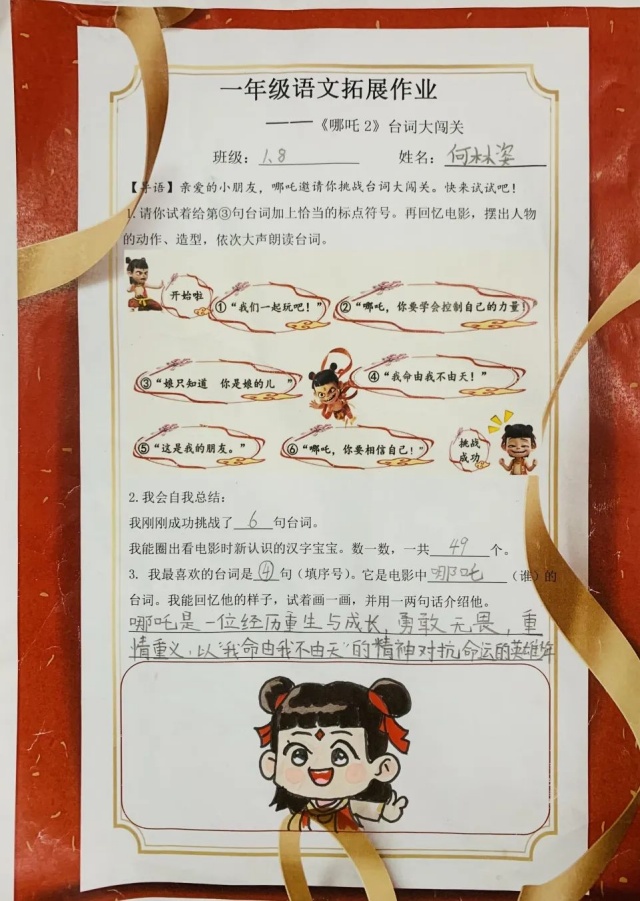 一年级语文拓展作业
——《哪吒2》台词大闯关
班级：1.8 姓名：何林姿
【导语】亲爱的小朋友，哪吒邀请你挑战台词大闯关。快来试试吧！
1.请你试着给第③句台词加上恰当的标点符号。再回忆电影，摆出人物
的动作、造型，依次大声朗读台词。
开始啦
①“我们一起玩吧！”
②“哪吒，你要学会控制自己的力量！
③“娘只知道 你是娘的儿 ”
④“我命由我不由天！”
⑤“这是我的朋友。”
⑥“哪吒，你要相信自己！”
挑战
成功
2.我会自我总结：
我刚刚成功挑战了6句台词。
我能圈出看电影时新认识的汉字宝宝。数一数，一共49个。
3. 我最喜欢的台词是④句（填序号）。它是电影中哪吒（谁）的
台词。我能回忆他的样子，试着画一画，并用一两句话介绍他。
哪吒是一位经历重生与成长，勇敢无畏，重
情重义，以“我命由我不由天”的精神对抗命运的英雄少年